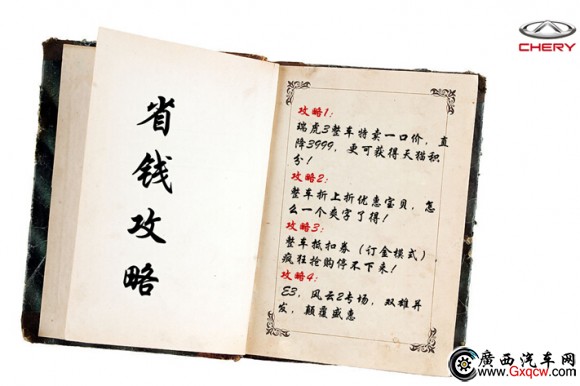 CHERY
省钱攻略
攻略1：
瑞虎3整车特卖一口价，直
降3999，更可获得天猫积
分！
攻略2：
整车折上折优惠宝贝，怎
么一个爽字了得！
攻略3：
整车抵扣券（订金模式）
疯狂抢购停不下来！
攻略4：
E3，风云2专场，双雄并
发，颠覆盛惠
廣西汽车网
www.Gxqcw.com